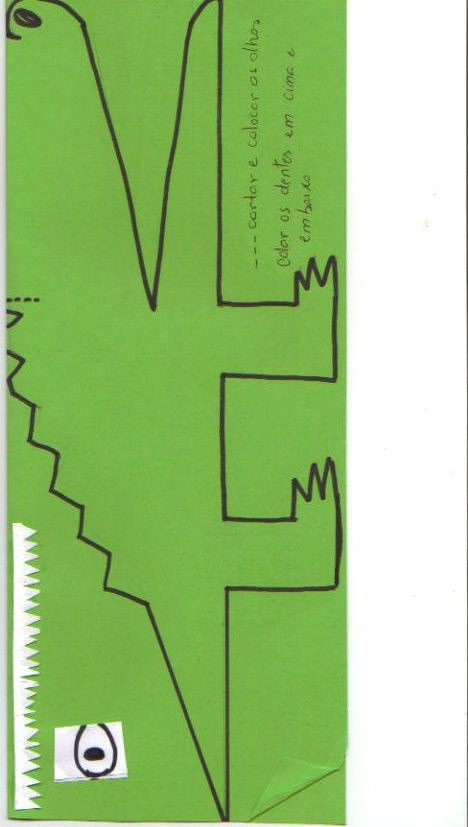 --- cortar e colocar os olhos
Colar os dentes em cima e
embaixo